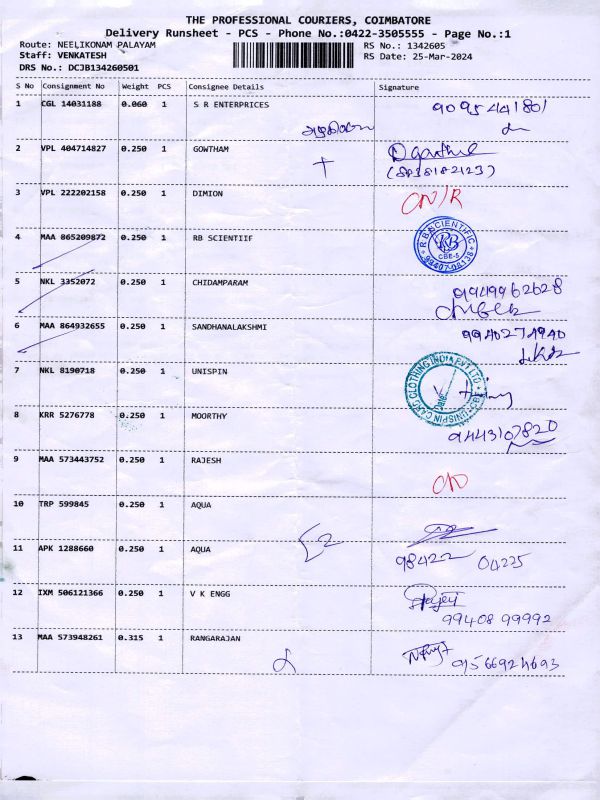 THE PROFESSIONAL COURIERS, COIMBATORE
Delivery Runsheet - PCS - Phone No.:0422-3505555 - Page No.:1
Route: NEELIKONAM PALAYAM RS No.: 1342605
Staff: VENKATESH RS Date: 25-Mar-2024
DRS No.: DCJB134260501
S No Consignment No Weight PCS Consignee Details Signature
1 CGL 14031188 0.060 1 S R ENTERPRICES 9095441801
2 VPL 404714827 0.250 1 GOWTHAM
3 VPL 222202158 0.250 1 DIMION
4 MAA 865209872 0.250 1 RB SCIENTIIF RB SCIENTIFIC RB CBE-5
5 NKL 3352072 0.250 1 CHIDAMPARAM 9949962628
6 MAA 864932655 0.250 1 SANDHANALAKSHMI 9940274940
7 NKL 8190718 0.250 1 UNISPIN
8 KRR 5276778 0.250 1 MOORTHY 9443107820
9 MAA 573443752 0.250 1 RAJESH
10 TRP 599845 0.250 1 AQUA
11 APK 1288660 0.250 1 AQUA 98422 04225
12 IXM 506121366 0.250 1 V K ENGG 99408 99992
13 MAA 573948261 0.315 1 RANGARAJAN 9566924693